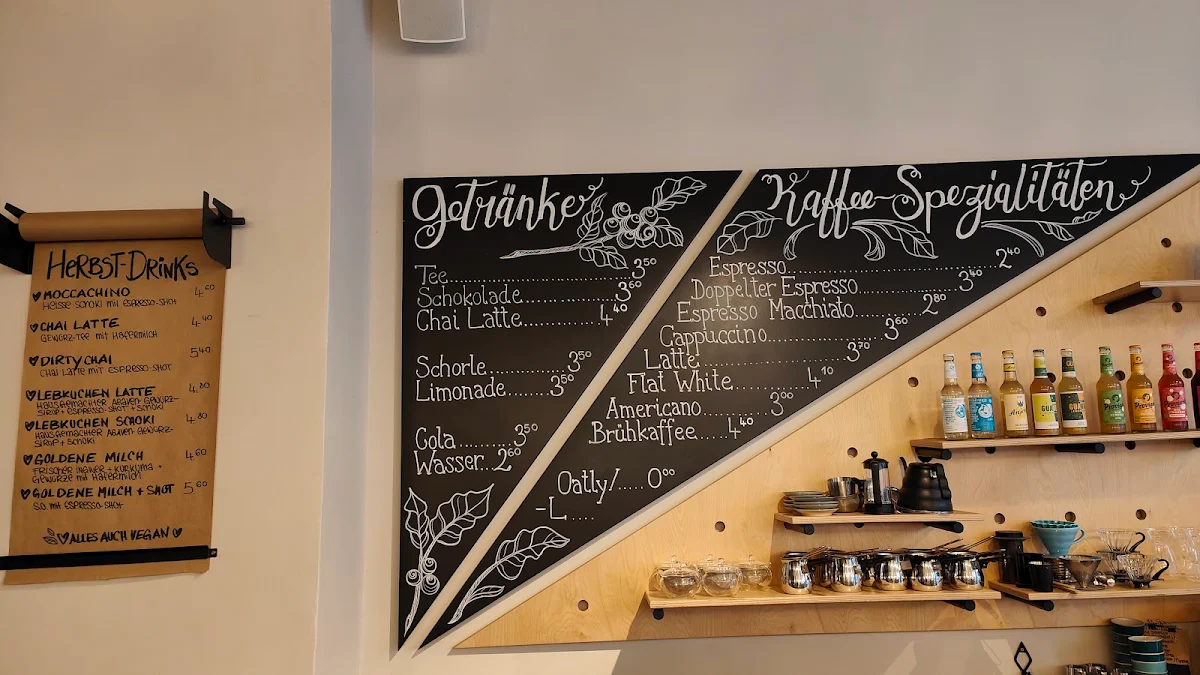 HERBST-DRINKS
MOCCACHINO 4.60
HEISSE SCHOKI MIT ESPRESSO-SHOT
CHAI LATTE 4.40
GEWÜRZ-TEE MIT HAFERMILCH
DIRTY CHAI 5.40
CHAI LATTE MIT ESPRESSO-SHOT
LEBKUCHEN LATTE 4.80
HAUSGEMACHTER AGAVEN GEWÜRZ-
SIRUP + ESPRESSO-SHOT + SCHOKI
LEBKUCHEN SCHOKI 4.80
HAUSGEMACHTER AGAVEN GEWÜRZ-
SIRUP + SCHOKI
GOLDENE MILCH 4.60
FRISCHER INGWER + KURKUMA +
GEWÜRZE MIT HAFERMILCH
GOLDENE MILCH + SHOT 5.60
S.O. MIT ESPRESSO-SHOT
ALLES AUCH VEGAN
Getränke
Tee 3.50
Schokolade 3.60
Chai Latte 4.40
Schorle 3.50
Limonade 3.50
Cola 3.50
Wasser 2.60
Kaffee-Spezialitäten
Espresso 2.40
Doppelter Espresso 3.40
Espresso Macchiato 2.80
Cappuccino 3.60
Latte 3.70
Flat White 4.10
Americano 3.00
Brühkaffee 4.40
Oatly/ 0.00
-L